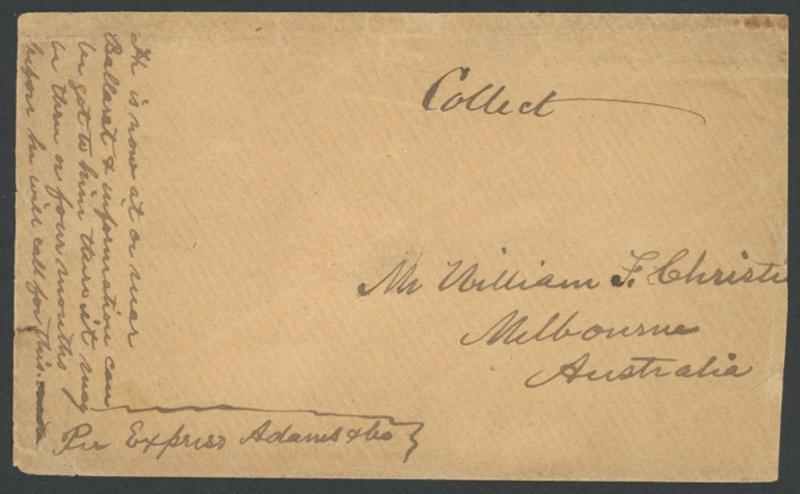 Collect
Mr William F. Christi
Melbourne
Australia
Per Express Adams & Co
He is now at or near
Ballarat & information can
be got to him there it may
be three or four months
before he will call for this.